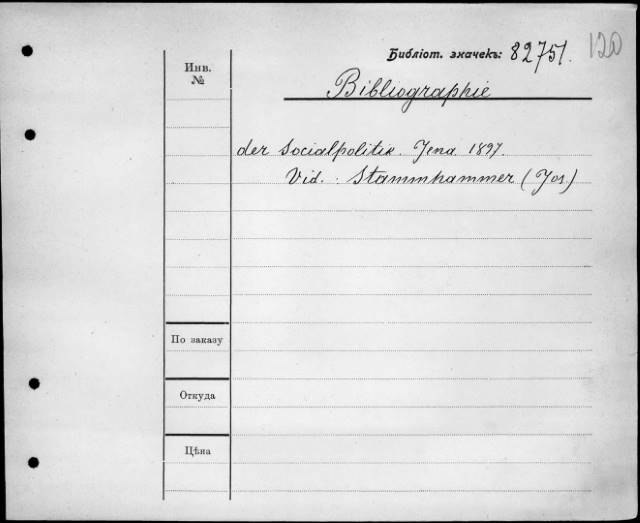 Библіот. значекъ: 82751. 120
Инв.
№
Bibliographie
der Socialpolitik. Jena. 1897.
Vid. : Stammhammer (Jos.)
По заказу
Откуда
Цѣна